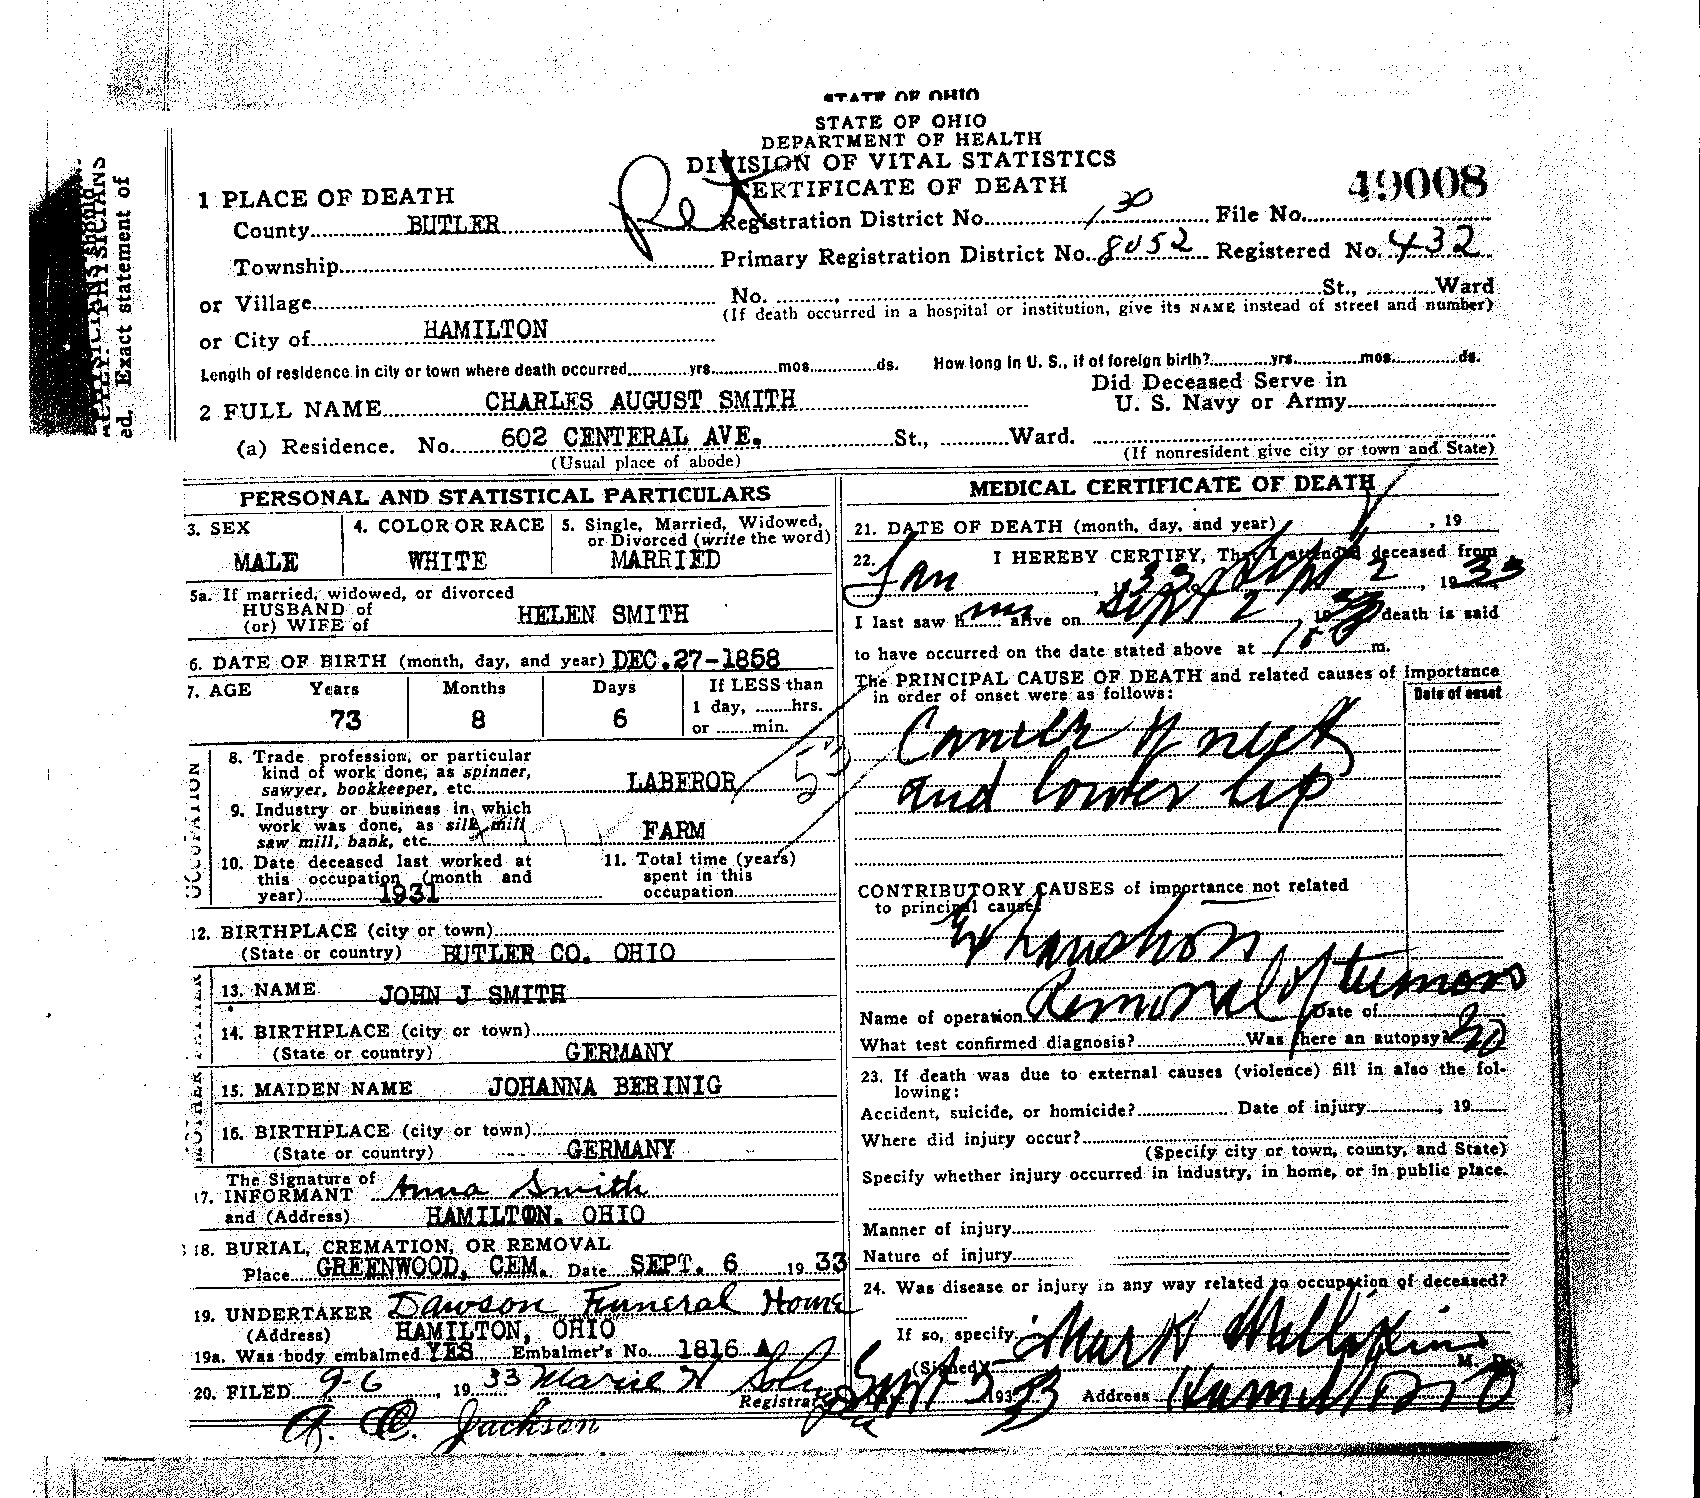 STATE OF OHIO
STATE OF OHIO
DEPARTMENT OF HEALTH
DIVISION OF VITAL STATISTICS
CERTIFICATE OF DEATH
49008
1 PLACE OF DEATH
County BUTLER
Registration District No. 130 File No.
Township
Primary Registration District No. 8052 Registered No. 432
or Village
No. , St., Ward
(If death occurred in a hospital or institution, give its NAME instead of street and number)
or City of HAMILTON
Length of residence in city or town where death occurred yrs. mos. ds. How long in U. S., if of foreign birth? yrs. mos. ds.
Did Deceased Serve in
U. S. Navy or Army
2 FULL NAME CHARLES AUGUST SMITH
(a) Residence. No. 602 CENTERAL AVE. St., Ward.
(Usual place of abode) (If nonresident give city or town and State)
PERSONAL AND STATISTICAL PARTICULARS
3. SEX 4. COLOR OR RACE 5. Single, Married, Widowed,
or Divorced (write the word)
MALE WHITE MARRIED
5a. If married, widowed, or divorced
HUSBAND of
(or) WIFE of HELEN SMITH
6. DATE OF BIRTH (month, day, and year) DEC.27-1858
7. AGE Years Months Days If LESS than
1 day, hrs.
or min.
73 8 6
OCCUPATION
8. Trade profession, or particular
kind of work done, as spinner,
sawyer, bookkeeper, etc. LABEROR
53
9. Industry or business in which
work was done, as silk mill
saw mill, bank, etc. FARM
10. Date deceased last worked at
this occupation (month and
year) 1931
11. Total time (years)
spent in this
occupation
12. BIRTHPLACE (city or town)
(State or country) BUTLER CO. OHIO
13. NAME JOHN J SMITH
14. BIRTHPLACE (city or town)
(State or country) GERMANY
MOTHER
15. MAIDEN NAME JOHANNA BERINIG
16. BIRTHPLACE (city or town)
(State or country) GERMANY
The Signature of
17. INFORMANT Anna Smith
and (Address) HAMILTON. OHIO
18. BURIAL, CREMATION, OR REMOVAL
Place GREENWOOD, CEM. Date SEPT. 6 1933
19. UNDERTAKER Dawson Funeral Home
(Address) HAMILTON, OHIO
19a. Was body embalmed YES Embalmer's No. 1816 A
20. FILED 9-6, 1933 Marie
Registrar
A. C. Jackson
MEDICAL CERTIFICATE OF DEATH
21. DATE OF DEATH (month, day, and year) , 19
22. I HEREBY CERTIFY, That I attended deceased from
Jan , 33, Sept 2, 1933
I last saw him alive on Sept 2, 1933 death is said
to have occurred on the date stated above at m.
The PRINCIPAL CAUSE OF DEATH and related causes of importance
in order of onset were as follows:
Date of onset
Cancer of neck
and lower lip
CONTRIBUTORY CAUSES of importance not related
to principal cause:
Exhaustion
Name of operation Removal of tumors Date of
What test confirmed diagnosis? Was there an autopsy? No
23. If death was due to external causes (violence) fill in also the fol-
lowing:
Accident, suicide, or homicide? Date of injury , 19
Where did injury occur?
(Specify city or town, county, and State)
Specify whether injury occurred in industry, in home, or in public place.
Manner of injury
Nature of injury
24. Was disease or injury in any way related to occupation of deceased?
If so, specify
(Signed) Mark Millikin M. D.
Sept 5 1933 Address Hamilton O
PHYSICIANS
ed. Exact statement of